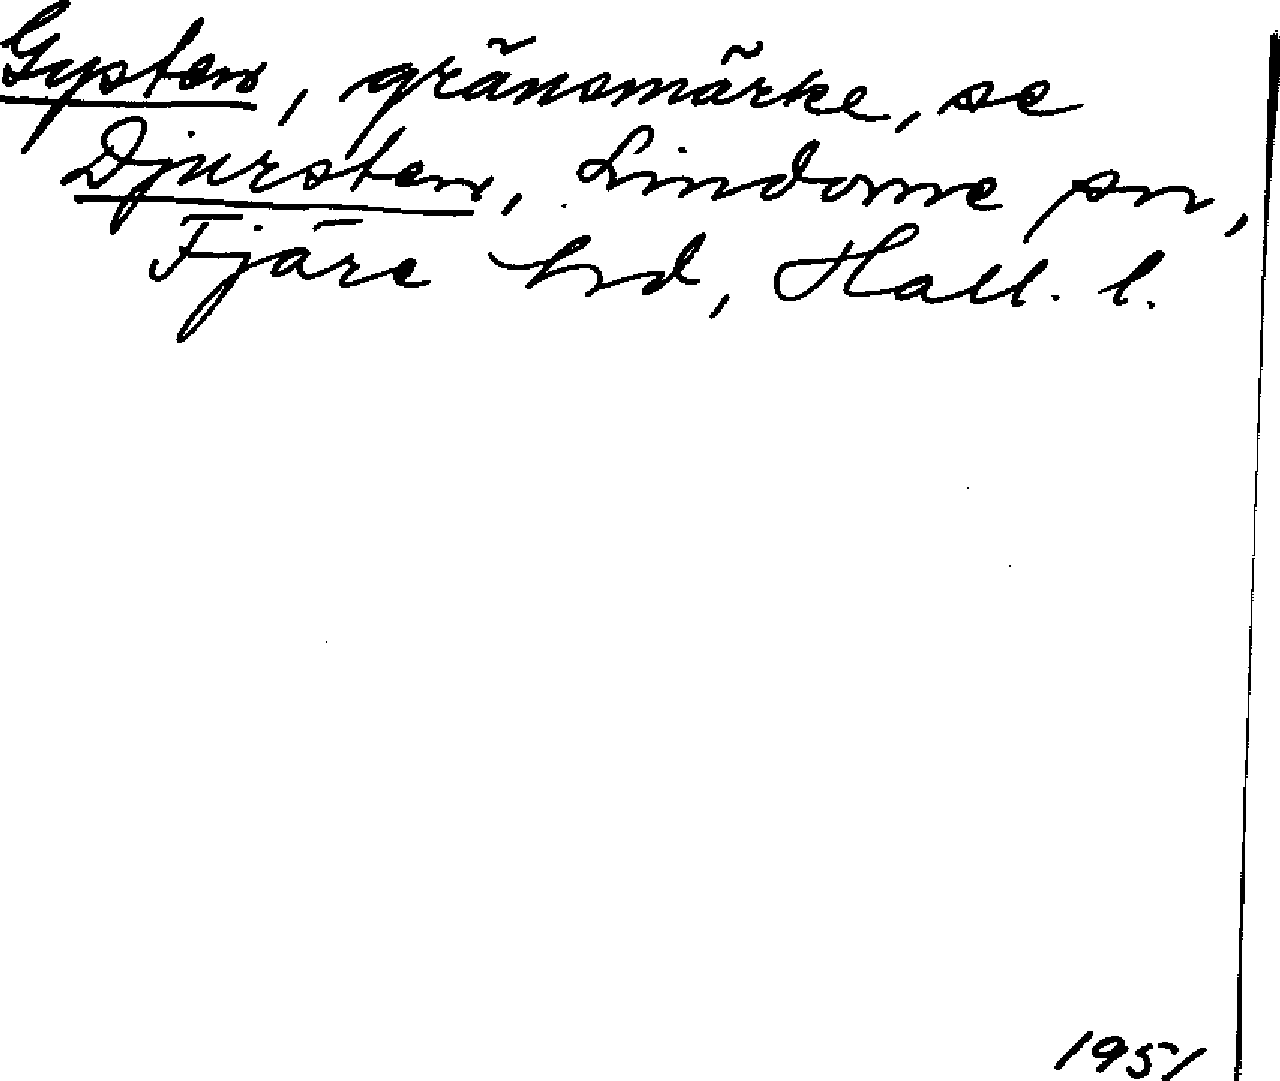 Gysten, gränsmärke, se
Djursten, Lindome sn,
Fjäre hd, Hall. l.
1951